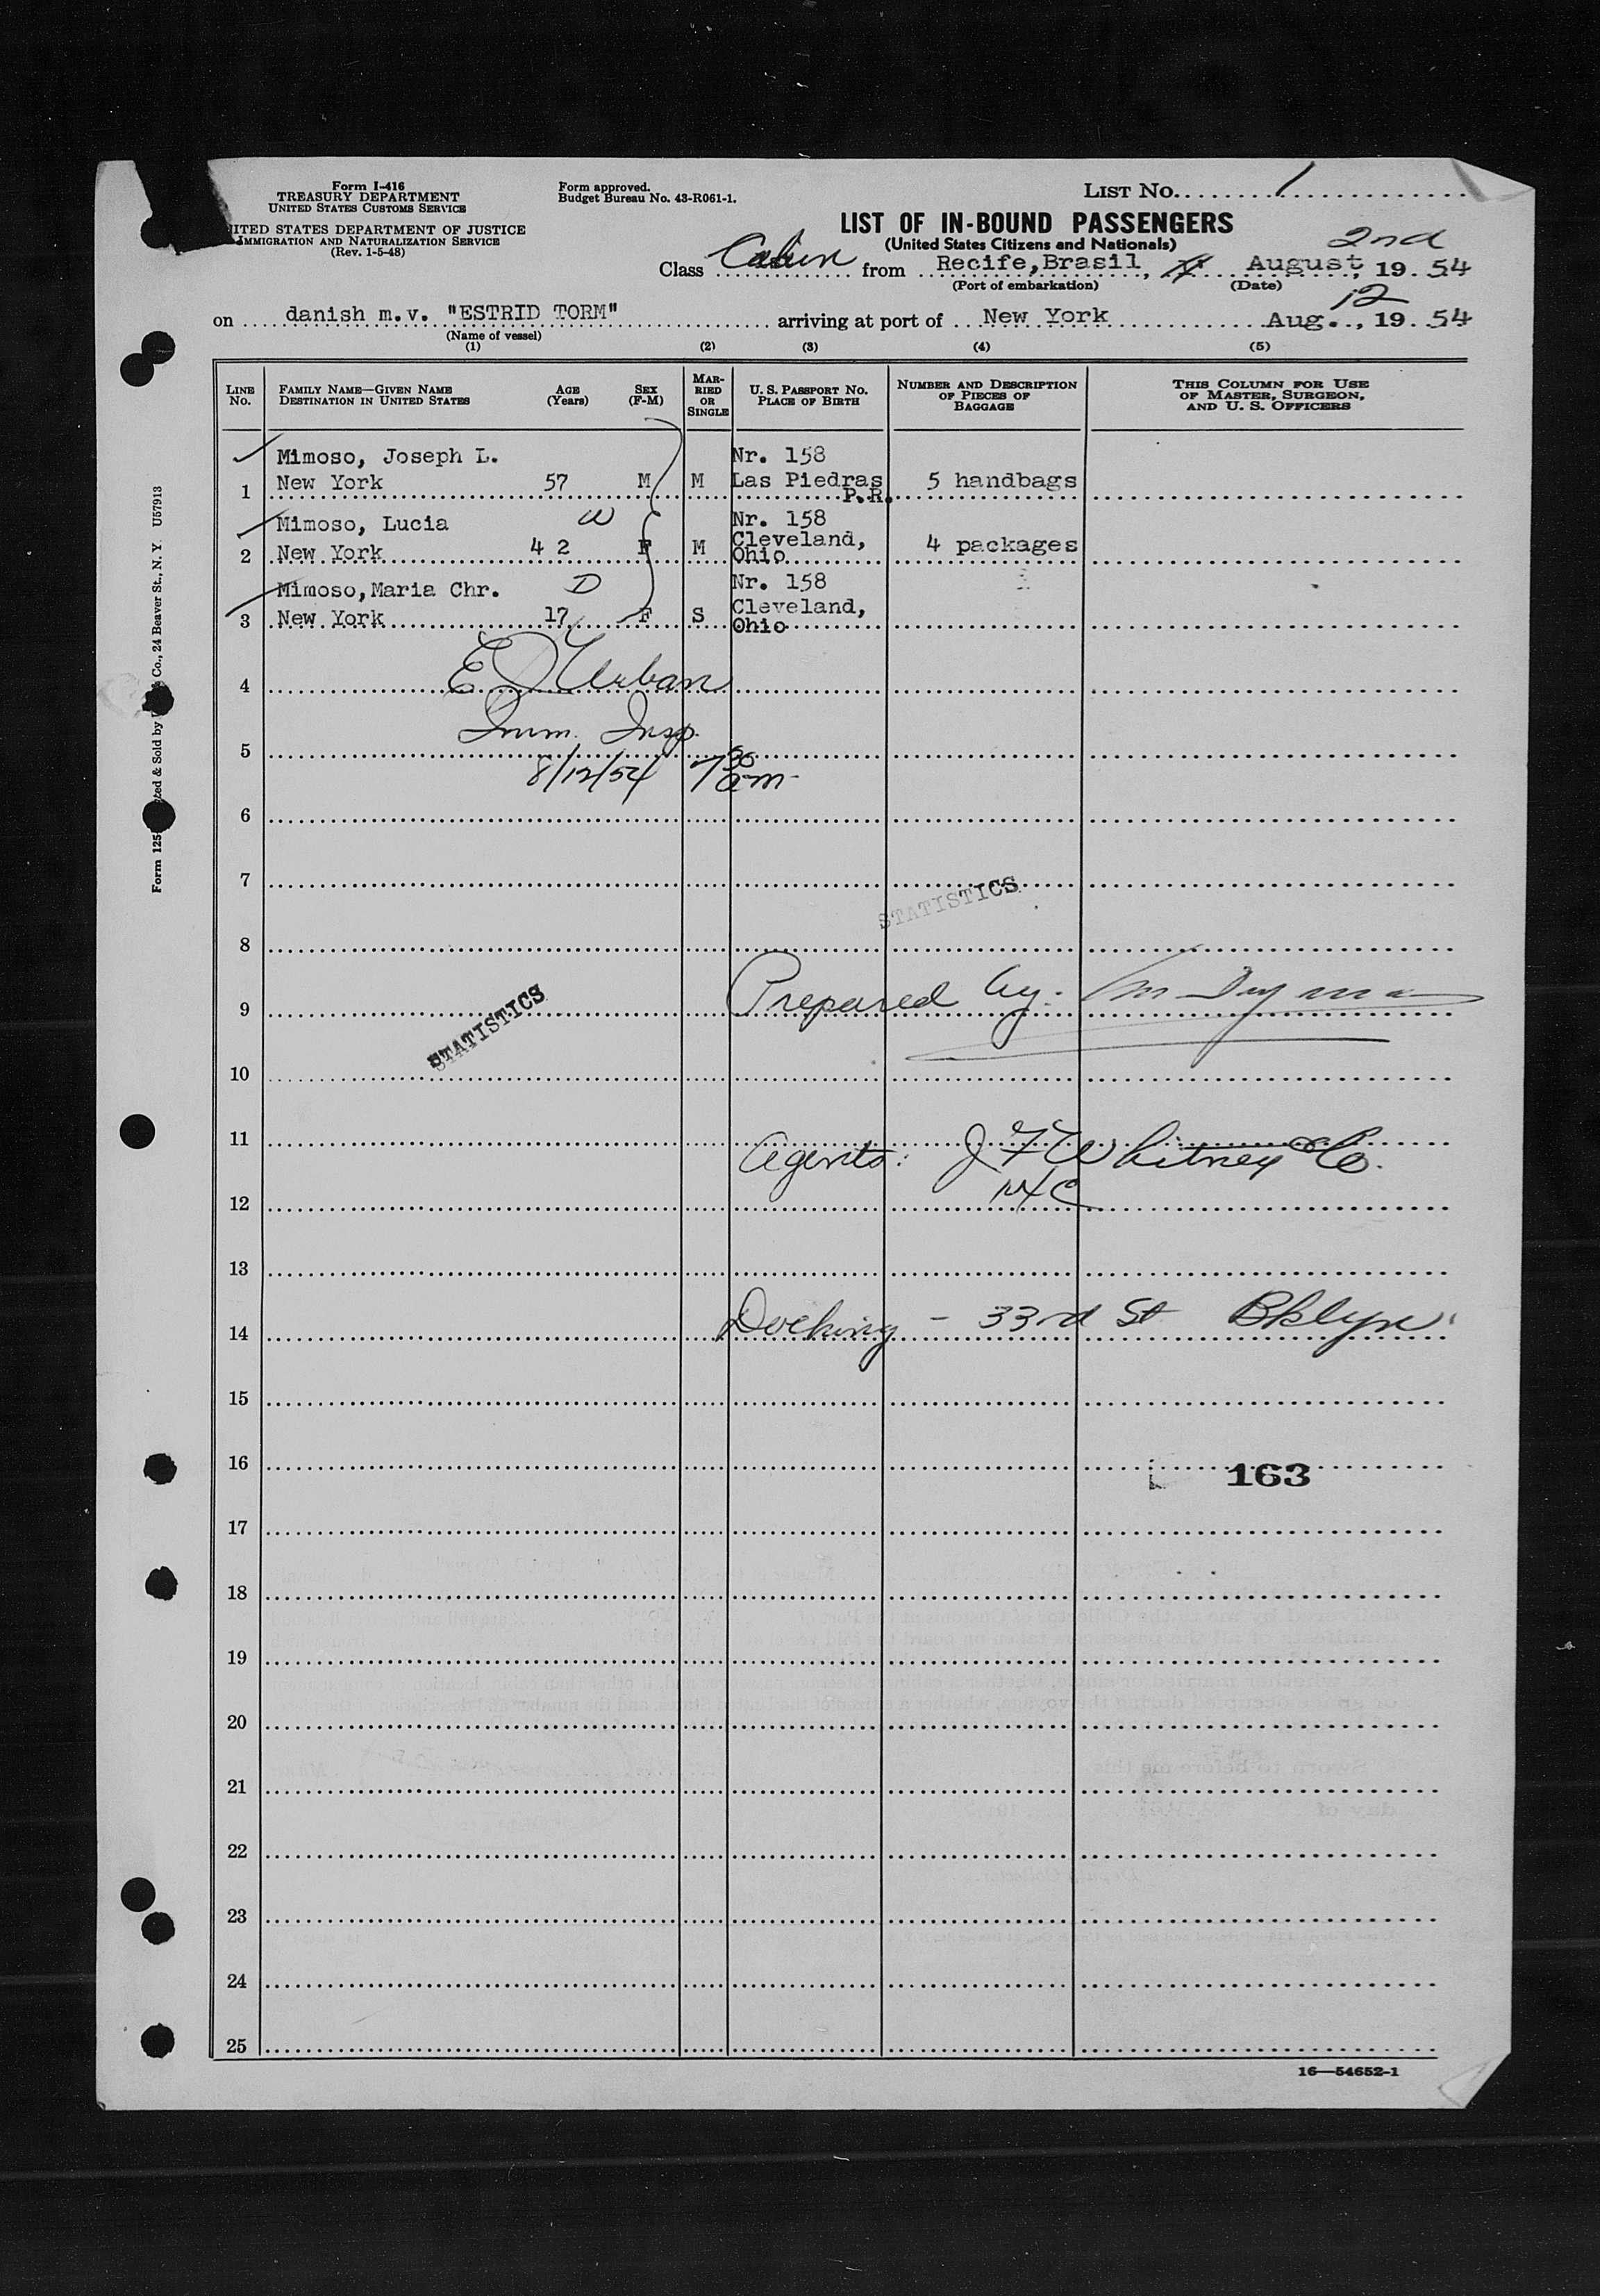 Form I-416
TREASURY DEPARTMENT
UNITED STATES CUSTOMS SERVICE
ITED STATES DEPARTMENT OF JUSTICE
IMMIGRATION AND NATURALIZATION SERVICE
(Rev. 1-5-48)
Form approved.
Budget Bureau No. 43-R061-1.
LIST No. 1
LIST OF IN-BOUND PASSENGERS
(United States Citizens and Nationals)
Class Cabin from Recife,Brasil, 2nd August, 19 54
(Port of embarkation) (Date)
on danish m.v. "ESTRID TORM" arriving at port of New York Aug. 12, 19 54
(Name of vessel)
(1) (2) (3) (4) (5)
LINE No.
FAMILY NAME—GIVEN NAME
DESTINATION IN UNITED STATES
AGE (Years)
SEX (F-M)
MARRIED OR SINGLE
U. S. PASSPORT NO.
PLACE OF BIRTH
NUMBER AND DESCRIPTION OF PIECES OF BAGGAGE
THIS COLUMN FOR USE OF MASTER, SURGEON, AND U. S. OFFICERS
Mimoso, Joseph L. Nr. 158
1 New York 57 M M Las Piedras P.R. 5 handbags
Mimoso, Lucia W Nr. 158
2 New York 42 F M Cleveland, Ohio 4 packages
Mimoso,Maria Chr. D Nr. 158
3 New York 17 F S Cleveland, Ohio
4 E D Urban
5 Imm. Insp.
8/12/54 7 30 am
6
7
STATISTICS
8
9 Prepared by:
STATISTICS
10
11
Agents: J F Whitney Co.
12 NYC
13
14 Docking - 33rd St Bklyn
15
16 163
17
18
19
20
21
22
23
24
25
16—54652-1
Form 125 ted & Sold by Co., 24 Beaver St., N. Y. U57913